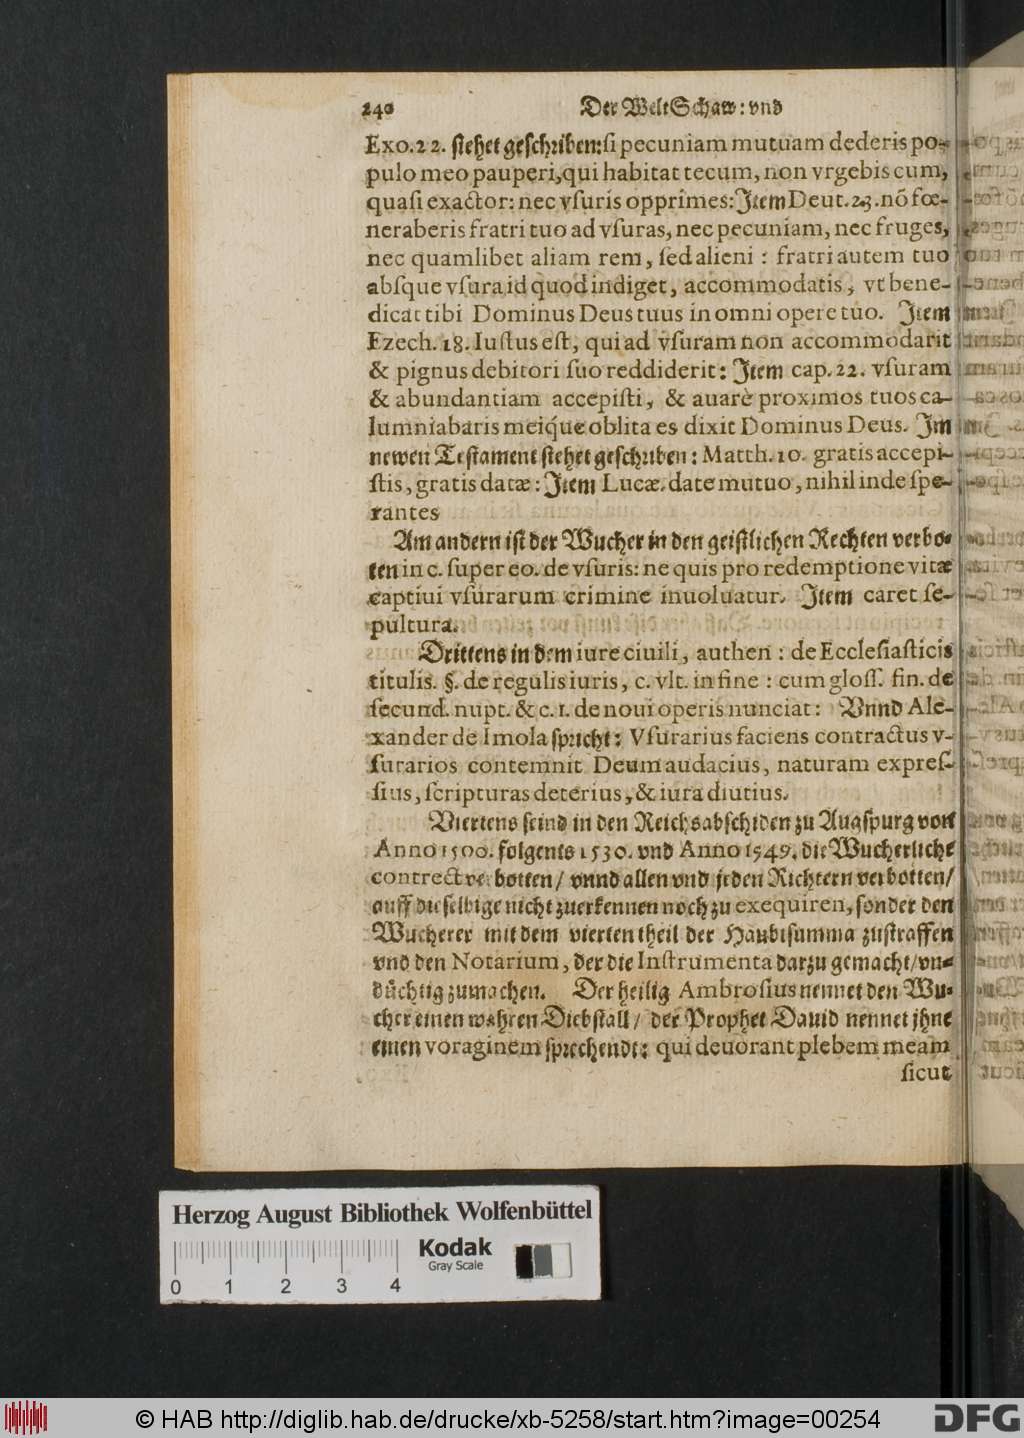 240 Der Welt Schaw: vnd
Exo.22. stehet geschriben: si pecuniam mutuam dederis po-
pulo meo pauperi, qui habitat tecum, non vrgebis cum,
quasi exactor: nec vsuris opprimes: Item Deut.23. nõ fœ-
neraberis fratri tuo ad vsuras, nec pecuniam, nec fruges,
nec quamlibet aliam rem, sed alieni : fratri autem tuo
absque vsura id quod indiget, accommodatis, vt bene-
dicat tibi Dominus Deus tuus in omni opere tuo. Item
Ezech. 18. Iustus est, qui ad vsuram non accommodarit
& pignus debitori suo reddiderit: Item cap. 22. vsuram
& abundantiam accepisti, & auarè proximos tuos ca-
lumniabaris meiq́ue oblita es dixit Dominus Deus. Im
newen Testament stehet geschriben: Matth. 10. gratis accepi-
stis, gratis datæ: Item Lucæ. date mutuo, nihil inde spe-
rantes
Am andern ist der Wucher in den geistlichen Rechten verbo-
ten in c. super eo. de vsuris: ne quis pro redemptione vitæ
captiui vsurarum crimine inuoluatur. Item caret se-
pultura.
Drittens in dem iure ciuili, authen : de Ecclesiasticis
titulis. §. de regulis iuris, c. vlt. in fine : cum gloss. fin. de
secund. nupt. & c. 1. de noui operis nunciat: Vnnd Ale-
xander de Imola spricht: Vsurarius faciens contractus v-
surarios contemnit Deum audacius, naturam expres-
sius, scripturas deterius, & iura diutius.
Viertens seind in den Reichsabschiden zu Augspurg von
Anno 1500. folgents 1530. vnd Anno 1549. die Wucherliche
contrect verbotten/ vnnd allen vnd jeden Richtern verbotten/
auff dieselbige nicht zuerkennen noch zu exequiren, sonder den
Wucherer mit dem vierten theil der Haubtsumma zustraffen
vnd den Notarium, der die Instrumenta darzu gemacht/ vn-
düchtig zumachen. Der heilig Ambrosius nennet den Wu-
cher einen wahren Diebstall/ der Prophet Dauid nennet jhne
einen voraginem sprechendt: qui deuorant plebem meam
sicut
Herzog August Bibliothek Wolfenbüttel
Kodak
Gray Scale
0 1 2 3 4
© HAB http://diglib.hab.de/drucke/xb-5258/start.htm?image=00254
DFG